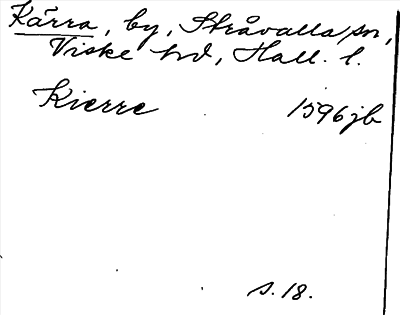 Kärra, by, Stråvalla sn,
Viske hd, Hall. l.
Kierre 1596 jb
s. 18.